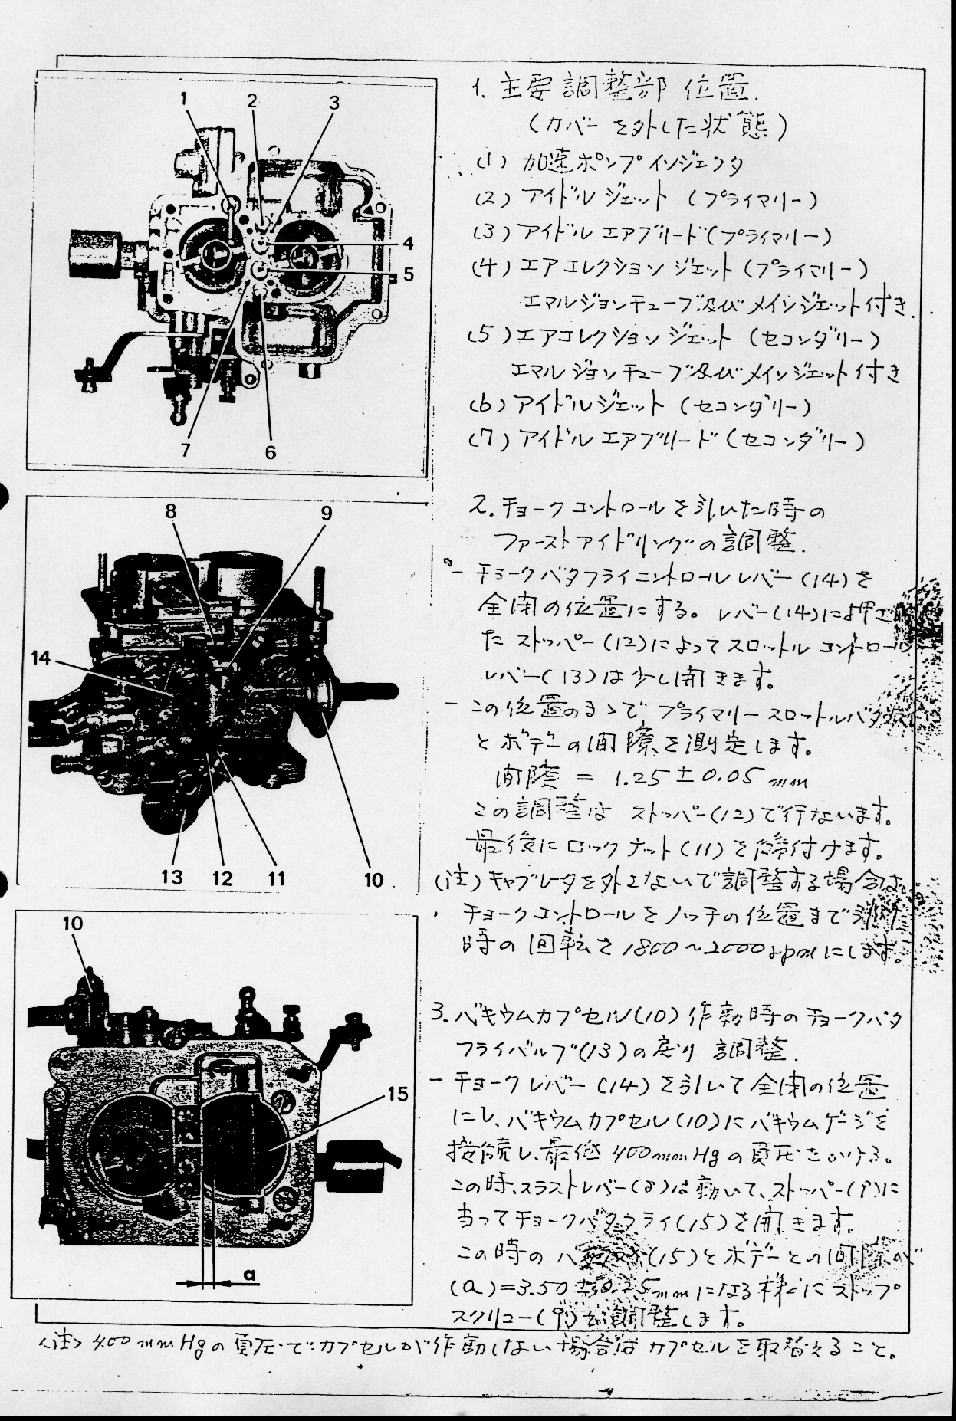 1 2 3
4
5
7 6
8 9
14
13 12 11 10
10
15
a
1. 主要調整部 位置.
(カバーを外した状態)
(1) 加速ポンプインジェクタ
(2) アイドルジェット (プライマリー)
(3) アイドルエアブリード(プライマリー)
(4) エアコレクションジェット(プライマリー)
エマルジョンチューブ及びメインジェット付き.
(5) エアコレクションジェット (セコンダリー)
エマルジョンチューブ及びメインジェット付き
(6) アイドルジェット (セコンダリー)
(7) アイドルエアブリード(セコンダリー)
2. チョークコントロールを引いた時の
ファーストアイドリングの調整.
- チョークバタフライコントロールレバー(14)を
全閉の位置にする。レバー(14)に押
たストッパー(12)によってスロットルコントロール
レバー(13)は少し開きます。
- この位置のまゝでプライマリースロットルバタ
とボデーの間隙を測定します。
間隙 = 1.25±0.05 mm
この調整はストッパー(12)で行ないます。
最後にロックナット(11)を締付けます。
(注) キャブレータを外さないで調整する場合は
チョークコントロールをノッチの位置まで引
時の回転を1800~2000rpmにします。
3. バキウムカプセル(10)作動時のチョークバタ
フライバルブ(13)の戻り調整.
- チョークレバー(14)を引いて全閉の位置
にし、バキウムカプセル(10)にバキウムゲージを
接続し、最低400mmHgの負圧をかける。
この時、スラストレバー(8)は動いて、ストッパー(9)に
当ってチョークバタフライ(15)を開きます。
この時の (15)とボデーとの間隙が
(a)=3.50±0.25mmになる様にストップ
スクリュー(9)を調整します。
<注> 400mmHgの負圧でカプセルが作動しない場合はカプセルを取替えること。